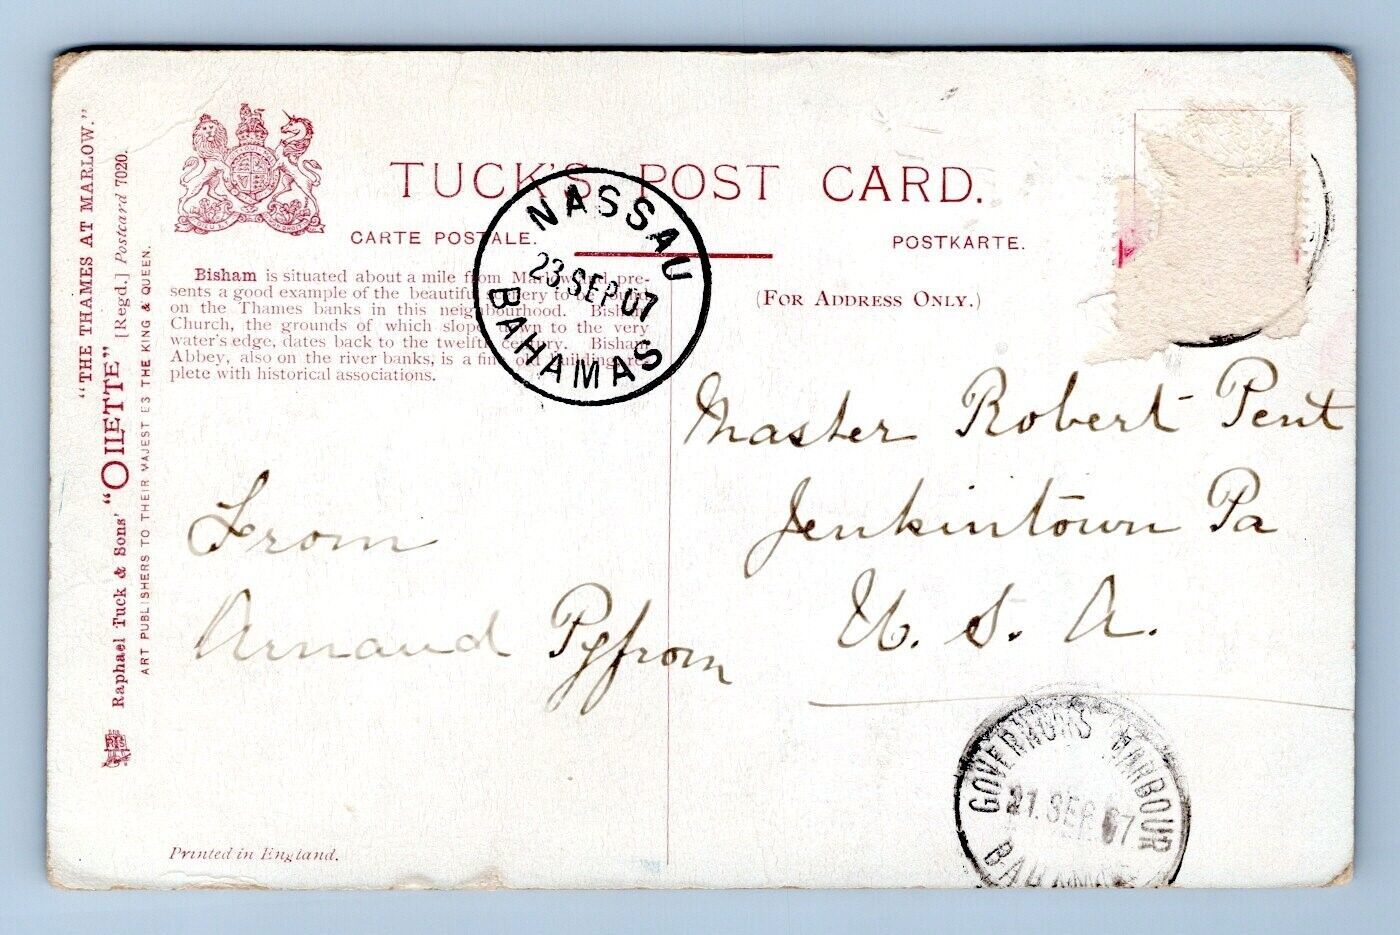 "THE THAMES AT MARLOW."
Raphael Tuck & Sons' "OILETTE" [Regd.] Postcard 7020.
ART PUBLISHERS TO THEIR MAJESTIES THE KING & QUEEN.
TUCK'S POST CARD.
CARTE POSTALE.
POSTKARTE.
(FOR ADDRESS ONLY.)
Bisham is situated about a mile from Marlow and pre-
sents a good example of the beautiful scenery to be found
on the Thames banks in this neighbourhood. Bisham
Church, the grounds of which slope down to the very
water's edge, dates back to the twelfth century. Bisham
Abbey, also on the river banks, is a fine old building re-
plete with historical associations.
NASSAU
23 SEP 07
BAHAMAS
Master Robert Pent
Jenkintown Pa
U. S. A.
From
Arnaud Pyfrom
GOVERNORS HARBOUR
21. SEP. 07
BAHAMAS
Printed in England.